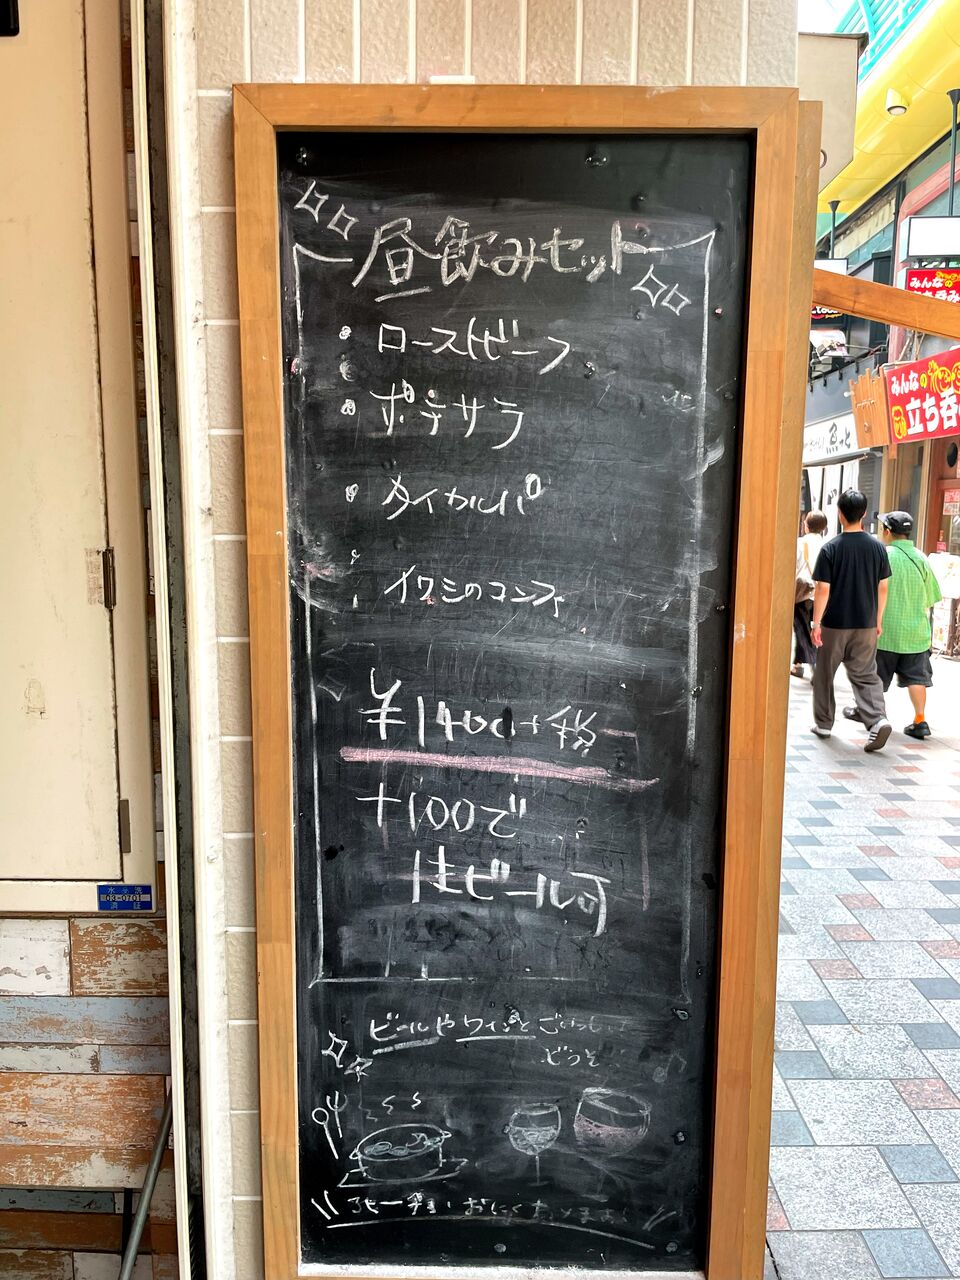 昼飲みセット
ローストビーフ
ポテサラ
タイカルパ
イワシのコンフィ
¥1400+税
+100で
生ビール可
ビールやワインとごいっしょ
どうぞ
みんなの
みんなの
立ち呑み
魚っと
水洗
03-0701
済証